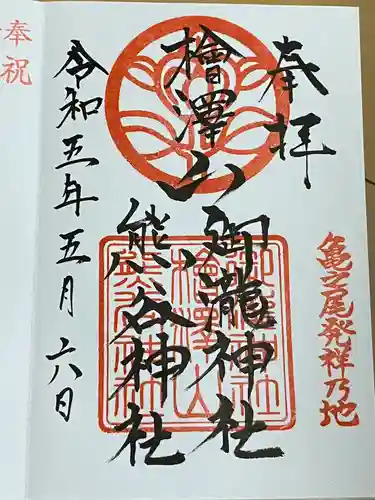 奉拝
亀之尾発祥乃地
檜澤山
御瀧神社
熊谷神社
令和五年五月六日
奉祝